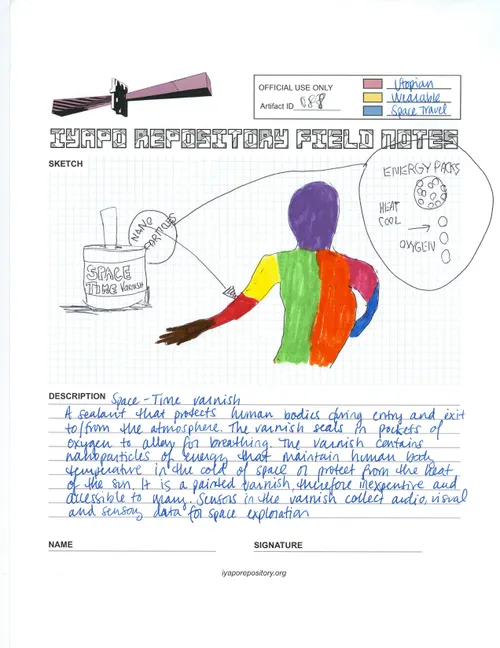 OFFICIAL USE ONLY
Artifact ID 088
Utopian
Wearable
Space Travel
IYAPO REPOSITORY FIELD NOTES
SKETCH
ENERGY PACKS
HEAT
COOL
OXYGEN
NANO
PARTICLES
SPACE
TIME VARNISH
DESCRIPTION Space-Time varnish
A sealant that protects human bodies during entry and exit
to/from the atmosphere. The varnish seals in pockets of
oxygen to allow for breathing. The varnish contains
nanoparticles of energy that maintain human body
temperature in the cold of space or protect from the heat
of the sun. It is a painted varnish, therefore inexpensive and
accessible to many. Sensors in the varnish collect audio, visual
and sensory data for space exploration
NAME
SIGNATURE
iyaporepository.org